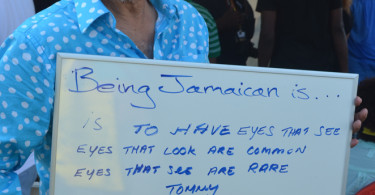 Being Jamaican is...
is TO HAVE EYES THAT SEE
EYES THAT LOOK ARE COMMON
EYES THAT SEE ARE RARE
TOMMY